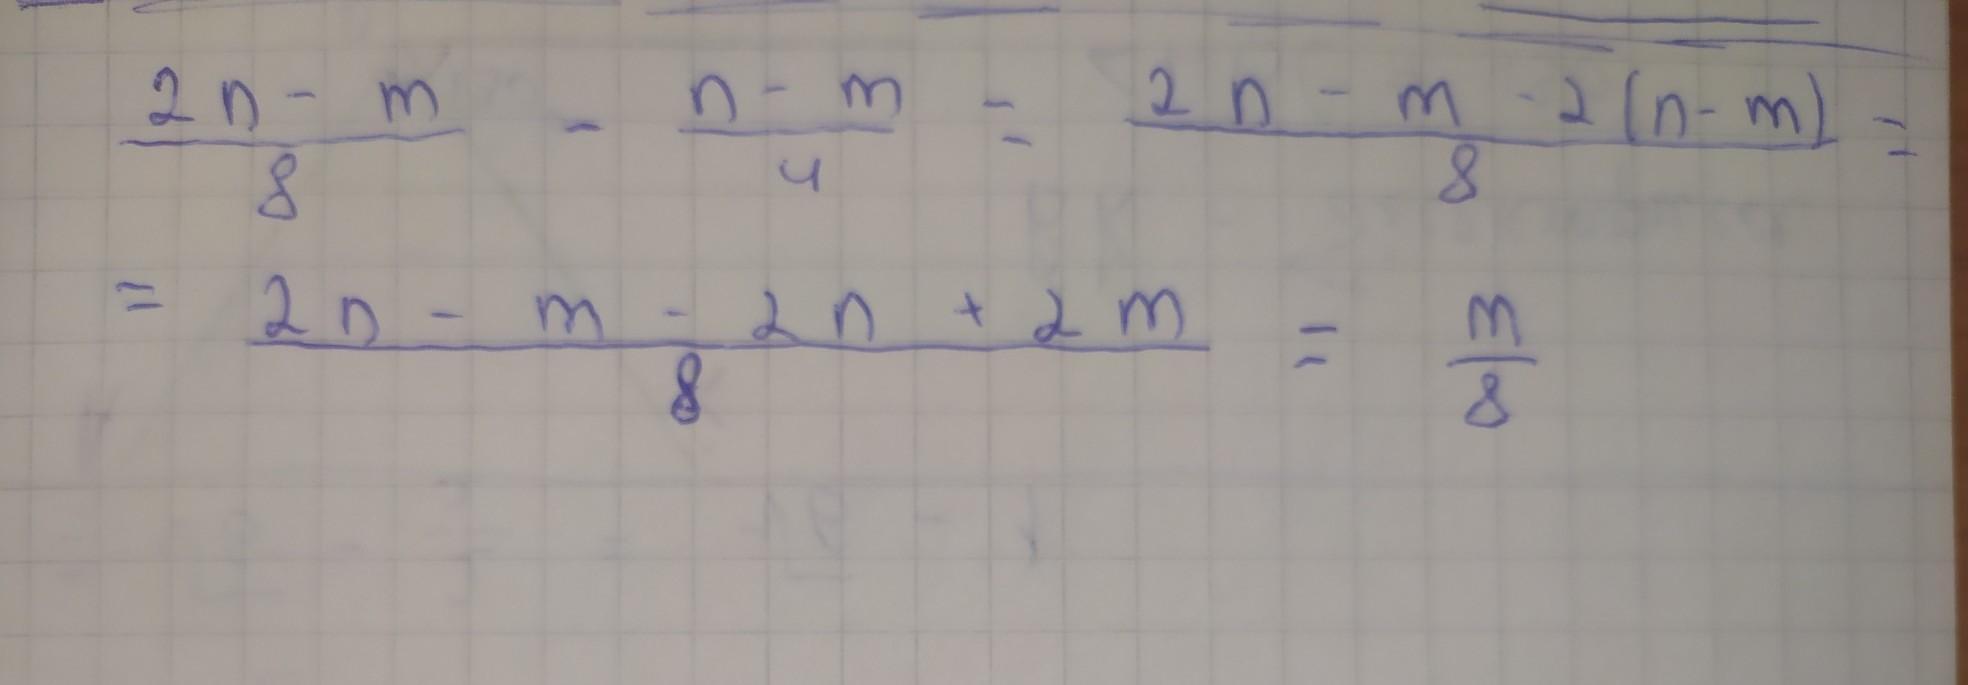 (2n - m)/8 - (n - m)/4 = (2n - m - 2(n - m))/8 =
= (2n - m - 2n + 2m)/8 = m/8